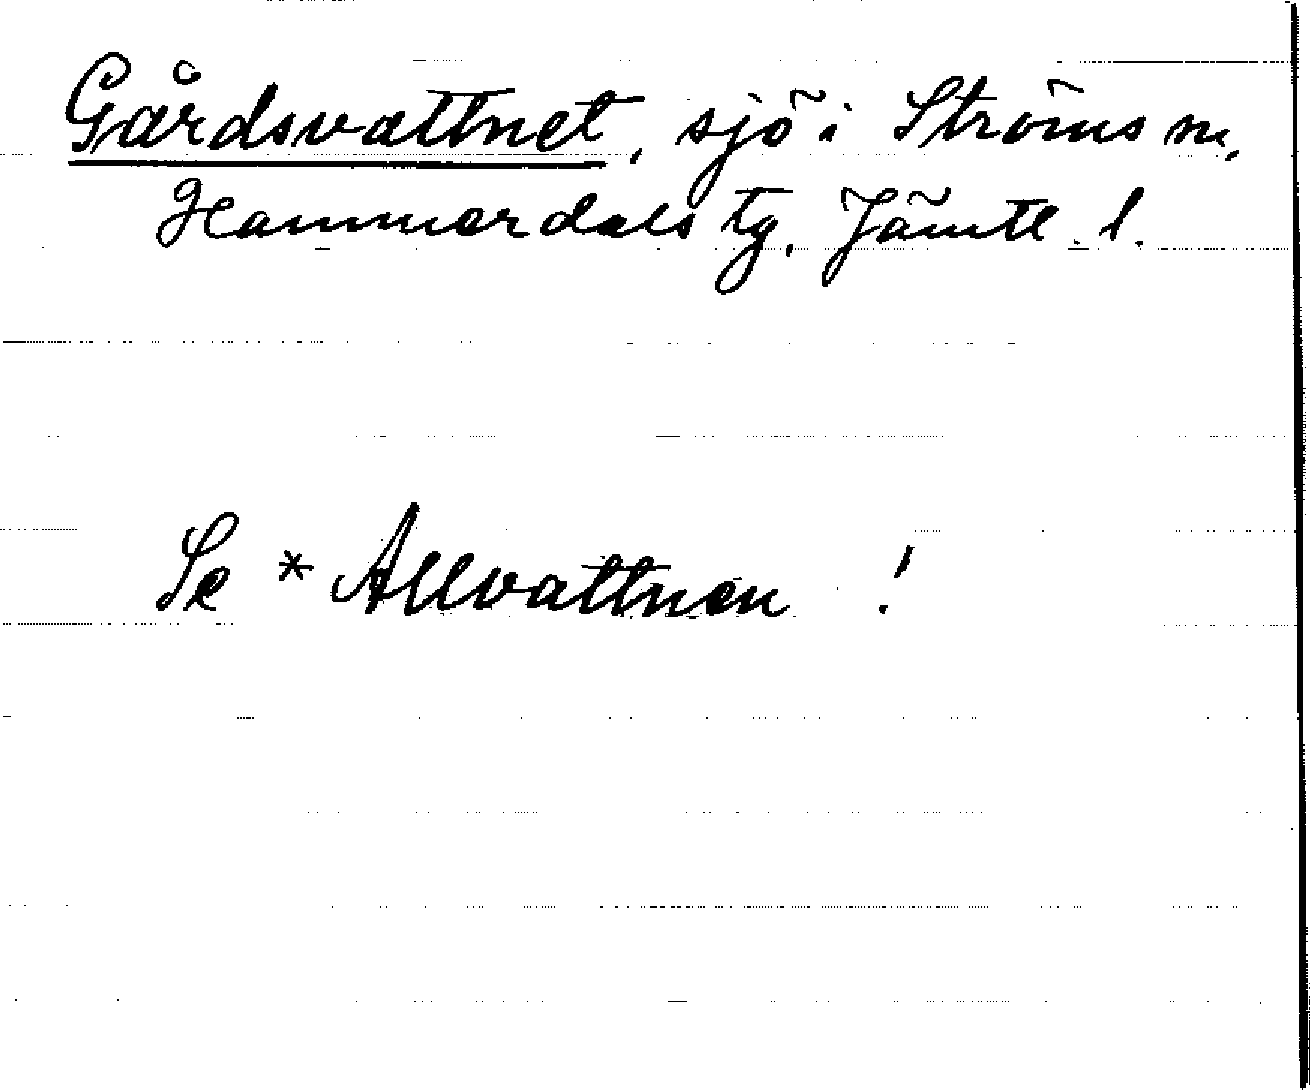 Gårdsvattnet, sjö i Ströms sn,
Hammerdals tg, Jämtl. l.
Se * Allvattnen !